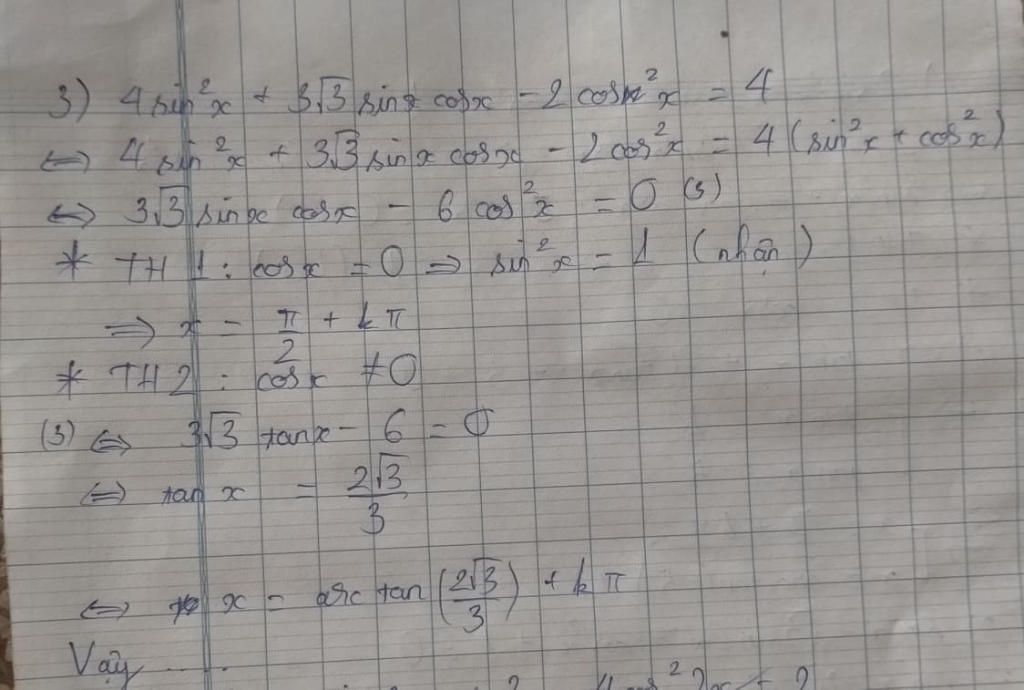 3) 4 sin²x + 3√3 sinx cosx - 2 cos²x = 4
⇔ 4 sin²x + 3√3 sinx cosx - 2 cos²x = 4 (sin²x + cos²x)
⇔ 3√3 sinx cosx - 6 cos²x = 0 (3)
* TH 1 : cosx = 0 ⇒ sin²x = 1 (nhận)
⇒ x = π/2 + kπ
* TH 2 : cosx ≠ 0
(3) ⇔ 3√3 tanx - 6 = 0
⇔ tan x = 2√3/3
⇔ x = arc tan (2√3/3) + kπ
Vậy .....